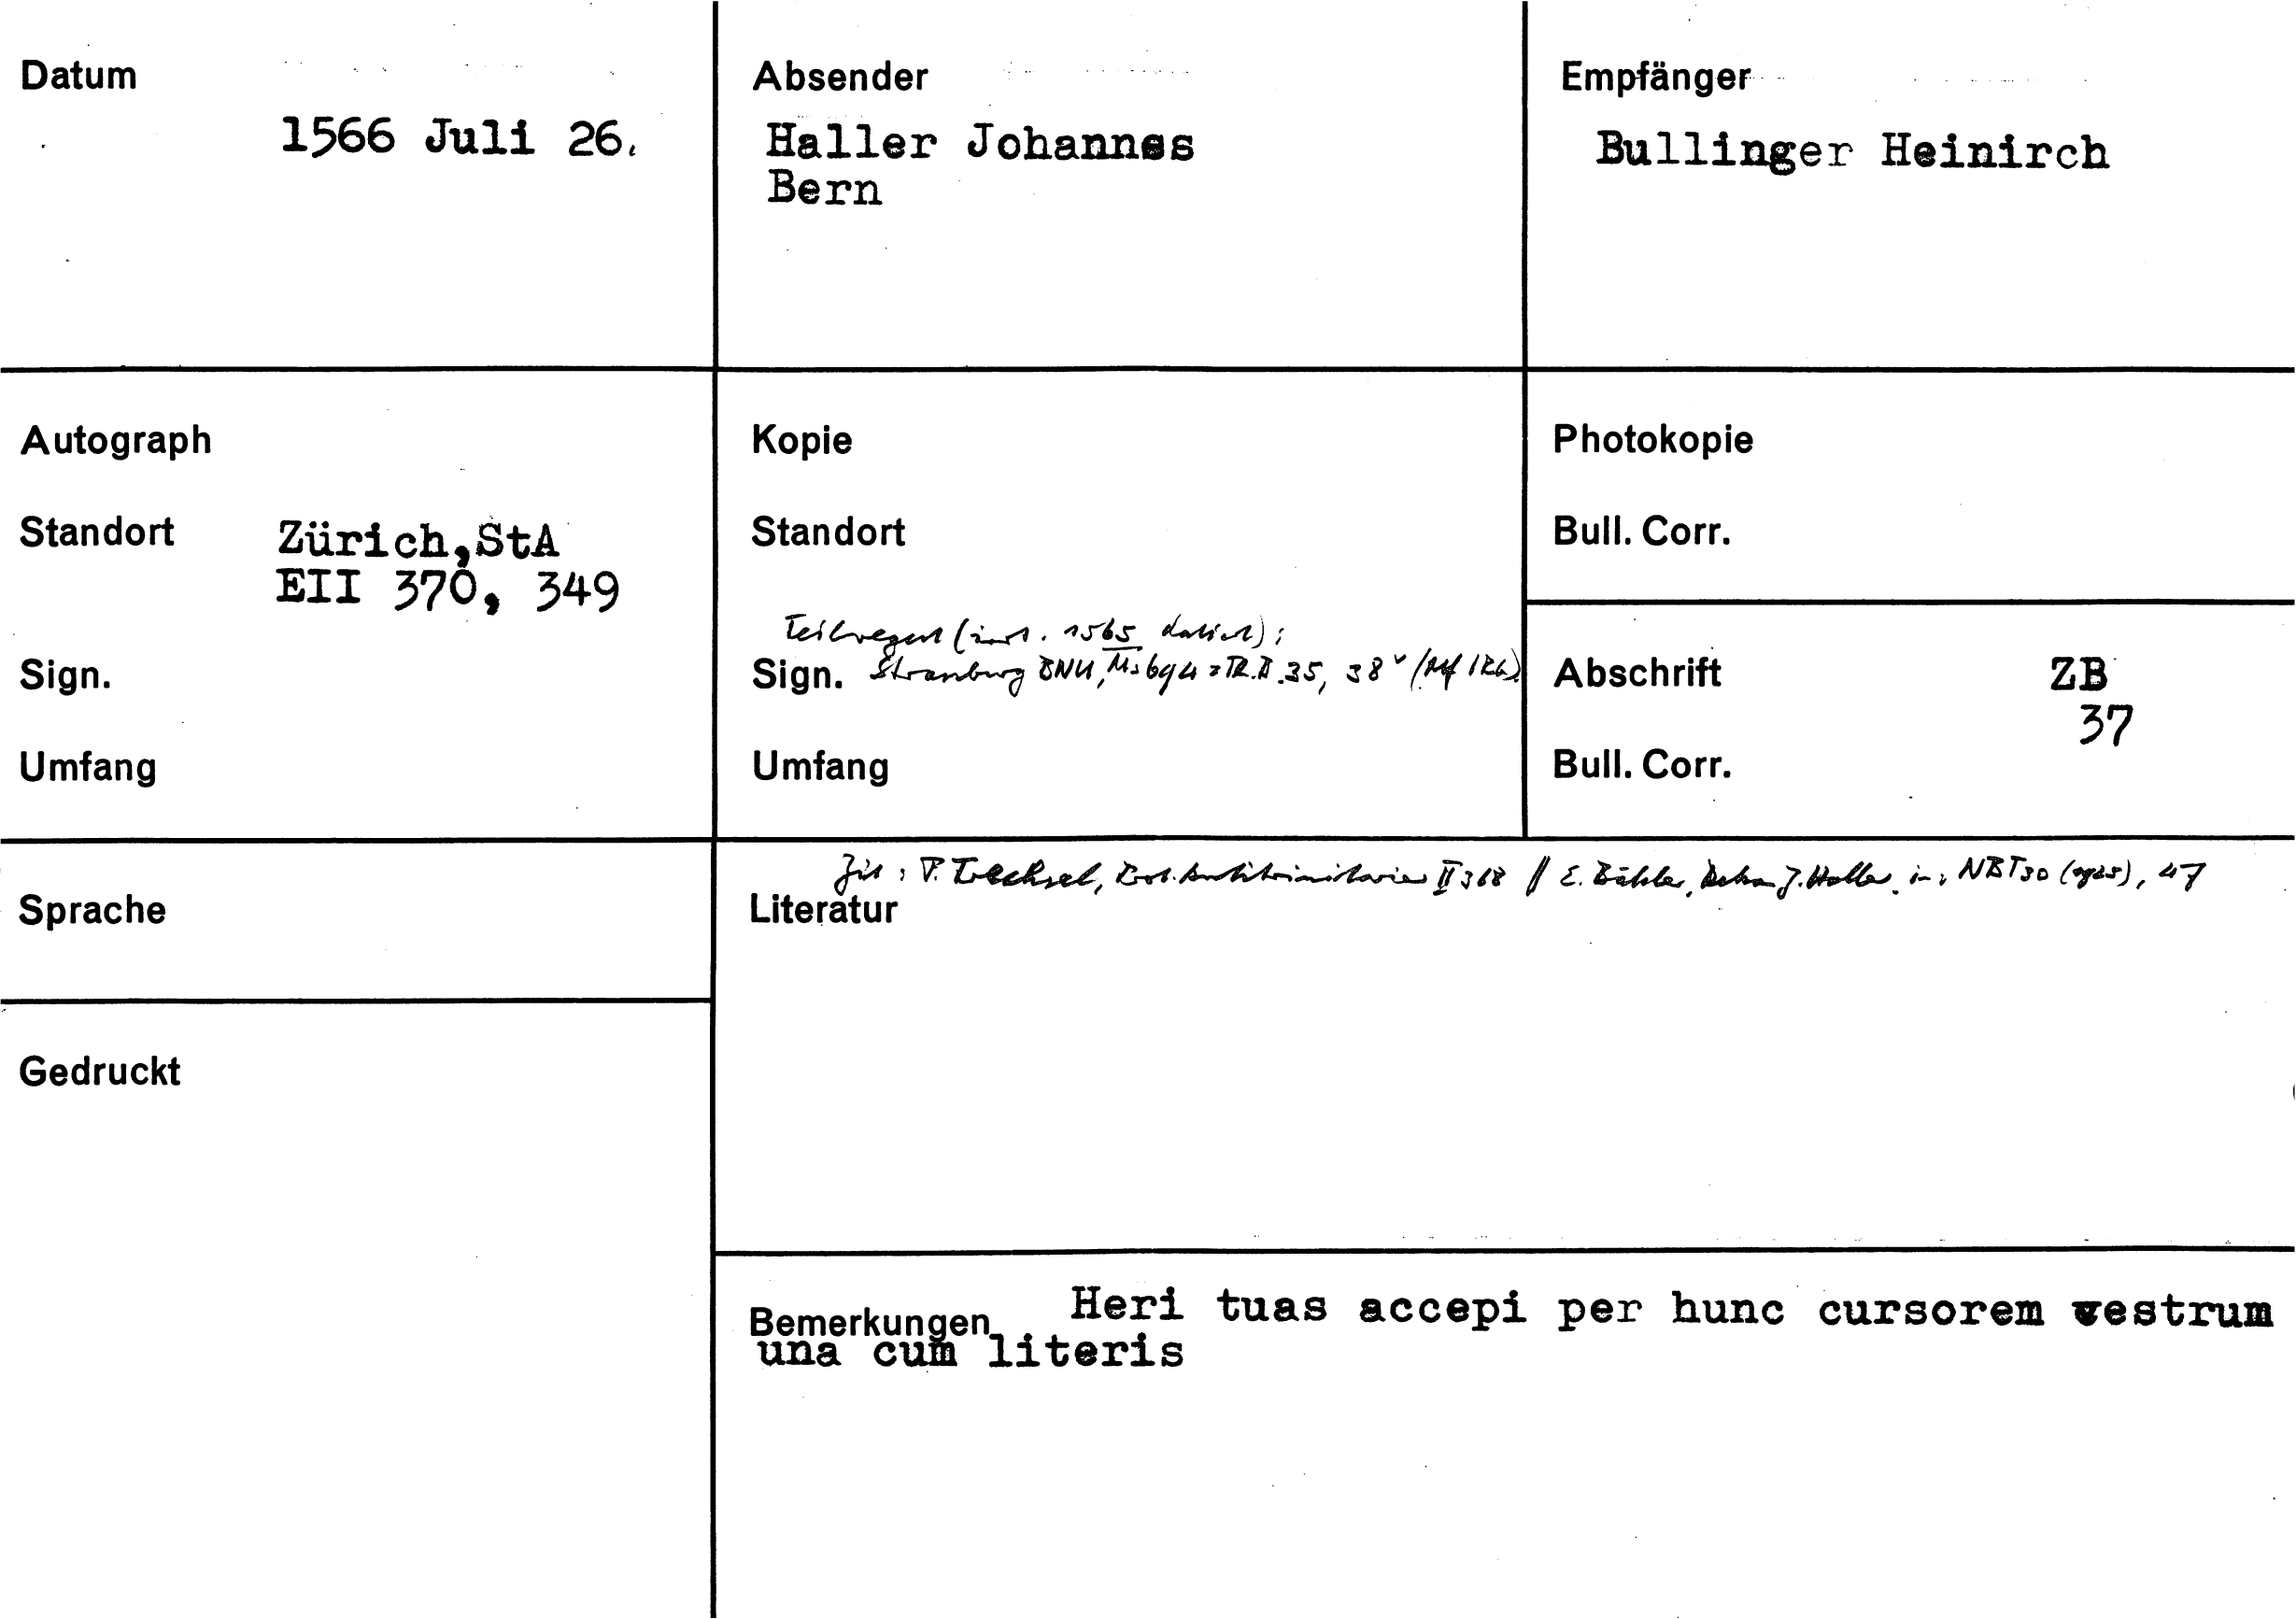 Datum
1566 Juli 26.
Absender
Haller Johannes
Bern
Empfänger
Bullinger Heinirch
Autograph
Standort
Zürich,StA
EII 370, 349
Sign.
Umfang
Kopie
Standort
Teilregest (irrt. 1565 datiert);
Sign. Strassburg BNU, Ms 694 = TR. II .35, 38v
Umfang
Photokopie
Bull. Corr.
Abschrift ZB
37
Bull. Corr.
Sprache
Zit: F. Trechsel, Prot. Antitrinitarier II 368 // E. Bähler, Dekan J. Haller, in: NBT 30 (1925), 47
Literatur
Gedruckt
Bemerkungen Heri tuas accepi per hunc cursorem vestrum
una cum literis